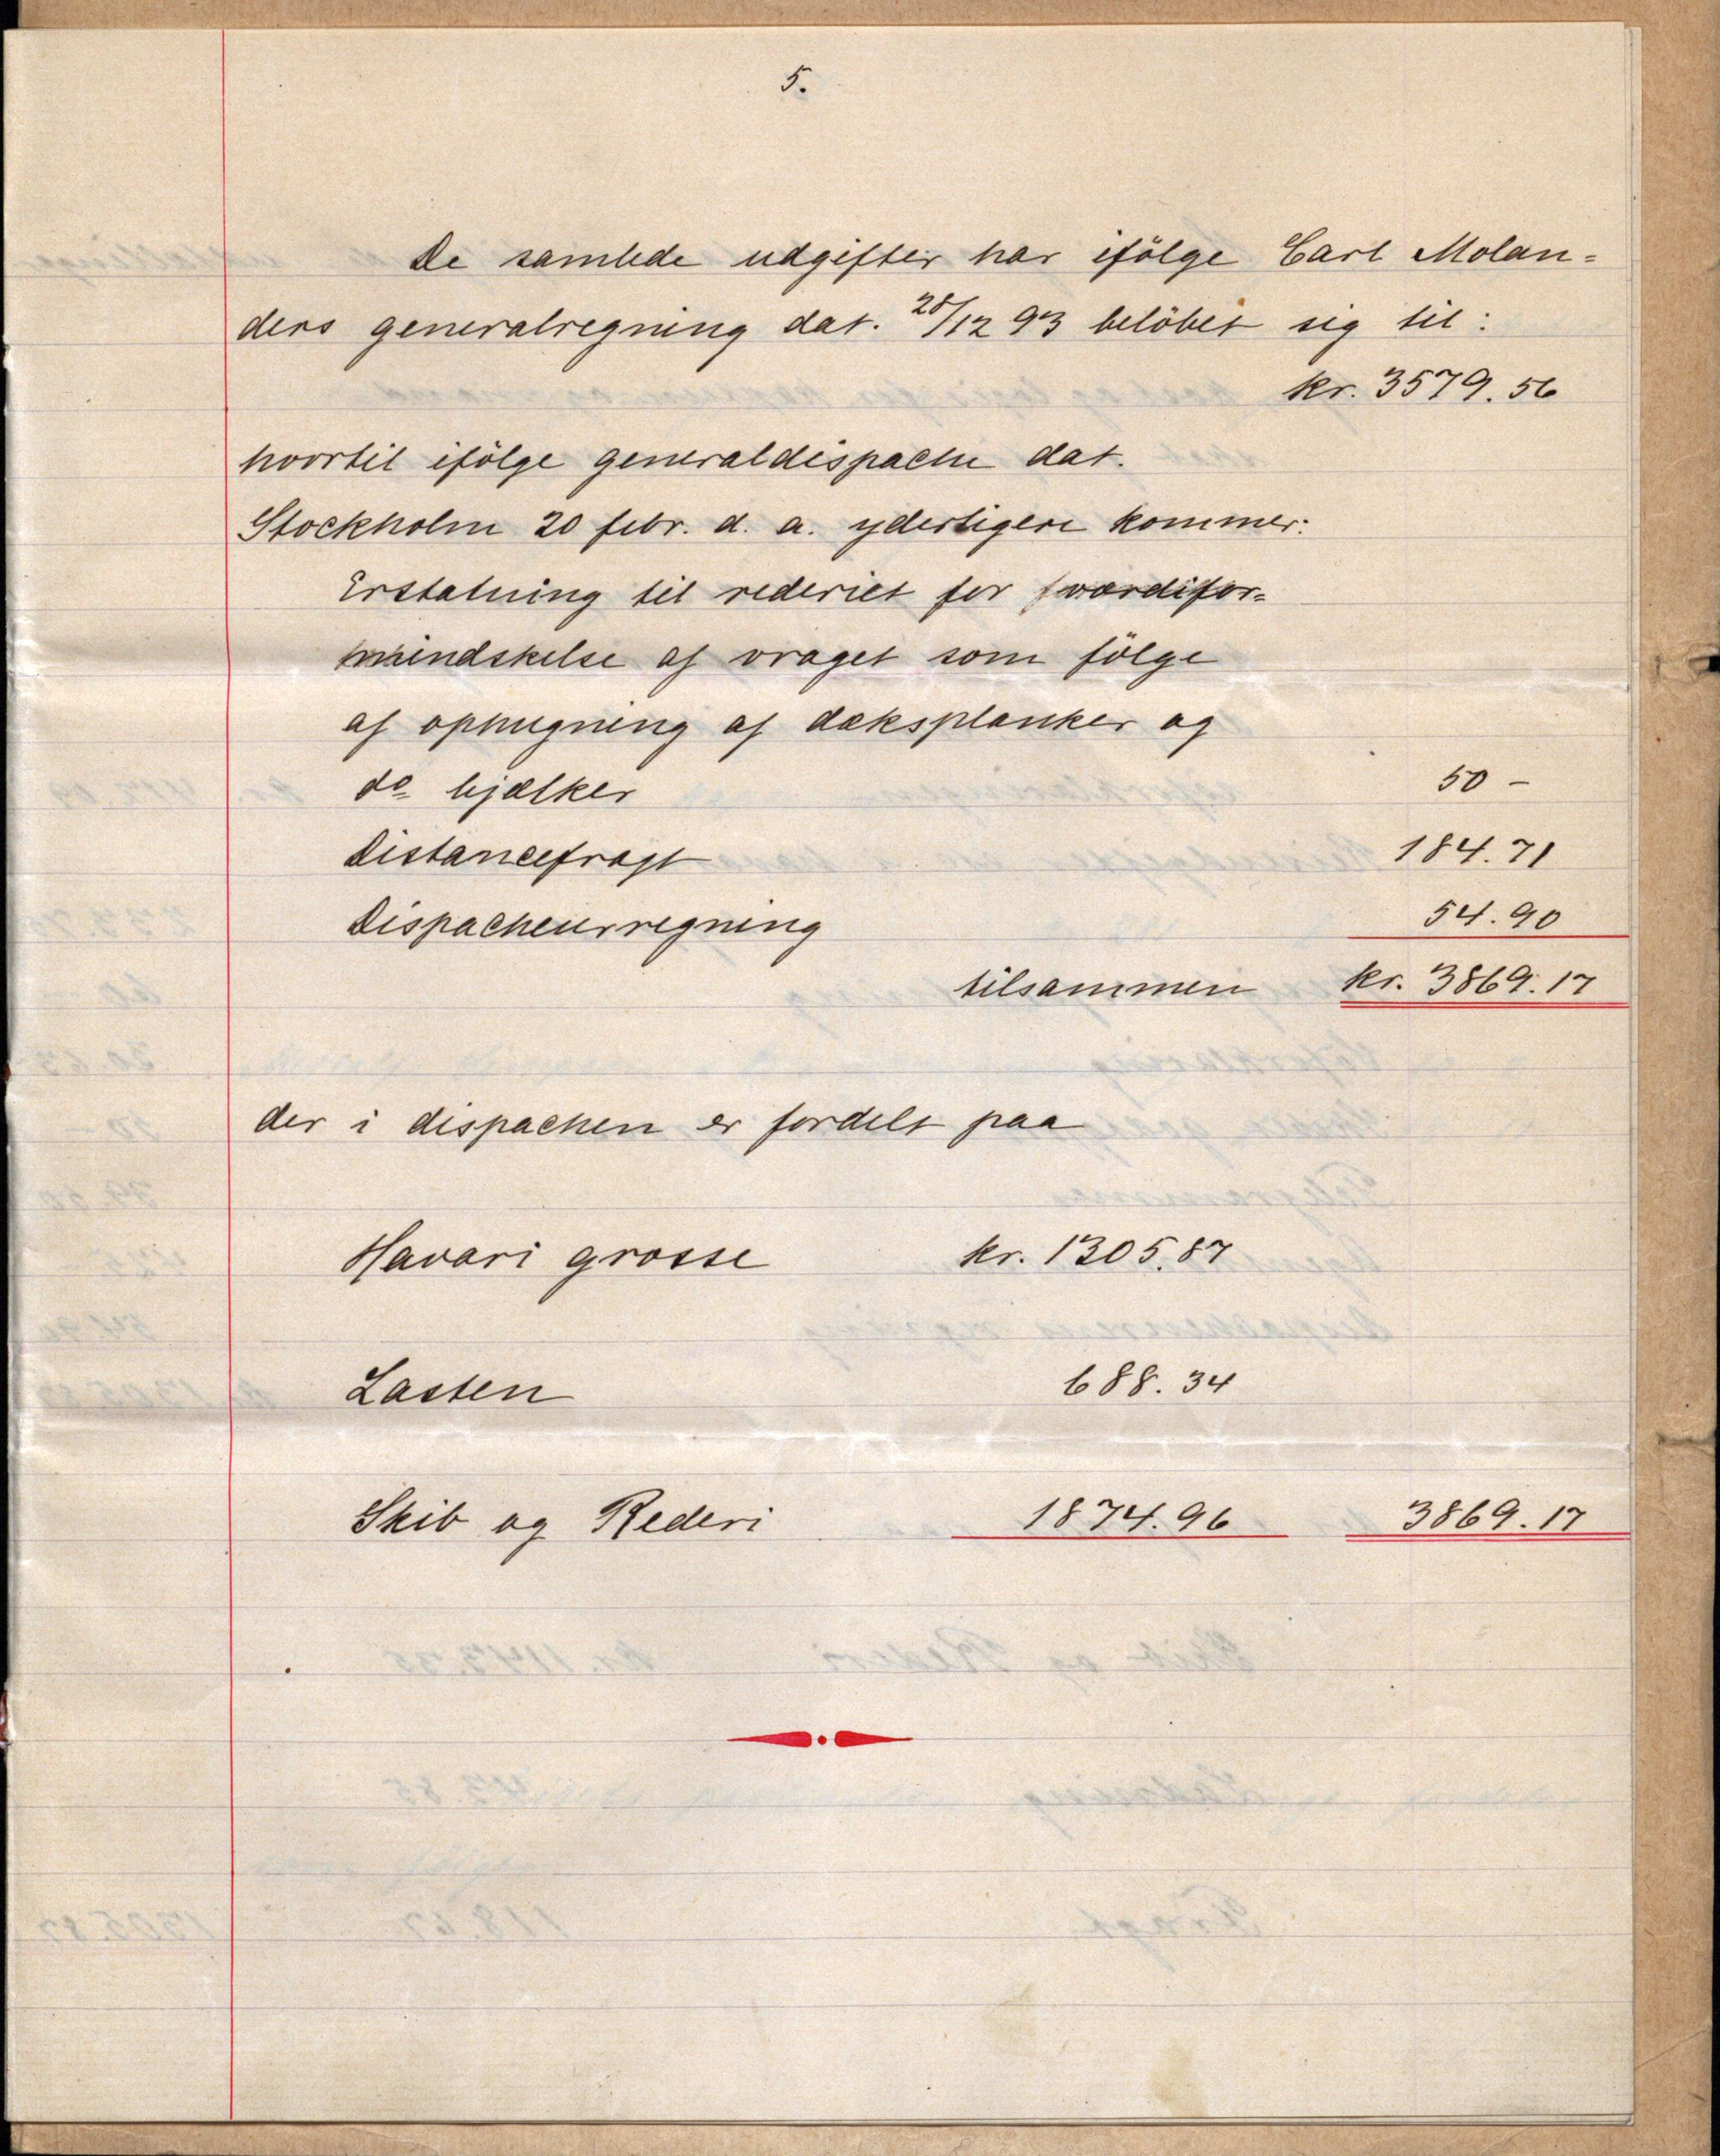 5.
De samlede udgifter har ifölge Carl Molan=
ders generalregning dat. 28/12 93 belöbet sig til:
kr. 3579.56
hvortil ifölge generaldispache dat.
Stockholm 20 febr. d. a. yderligere kommer:
Erstatning til rederiet for værdifor=
mindskelse af vraget som fölge
af ophugning af dæksplanker og
do bjælker 50 –
Distancefragt 184.71
Dispacheurregning 54.90
tilsammen kr. 3869.17
der i dispachen er fordelt paa
Havari grosse kr. 1305.87
Lasten 688.34
Skib og Rederi 1874.96 3869.17